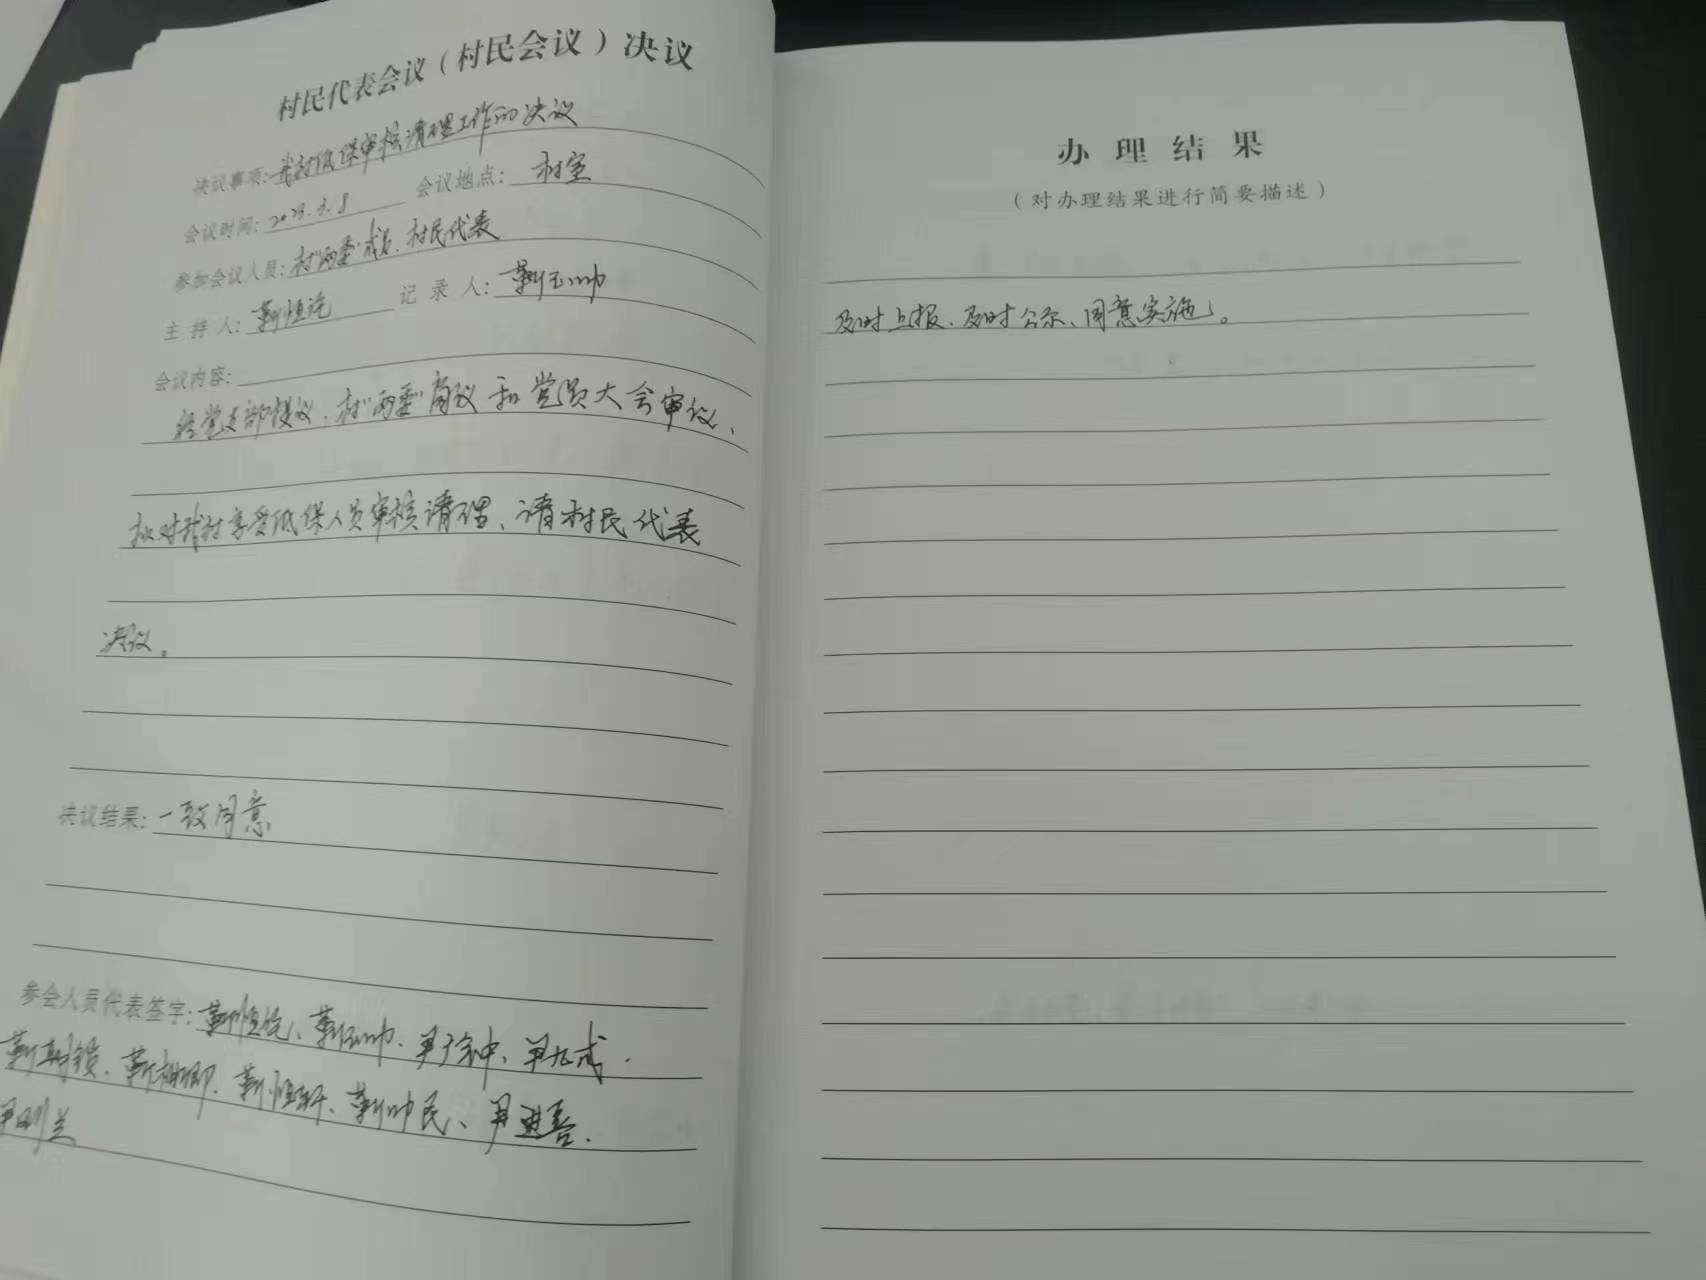 村民代表会议（村民会议）决议
决议事项：我村低保审核清理工作的决议
会议时间：2023.3.8 会议地点：村室
参加会议人员：村“两委”成员、村民代表
主 持 人：靳恒 记 录 人：靳玉帅
会议内容：
经党支部提议、村“两委”商议和党员大会审议、
拟对我村享受低保人员审核清理、请村民代表
决议。
决议结果：一致同意
参会人员代表签字：靳恒、靳玉帅、
靳朝锁、靳恒轩、靳帅民、尹进喜.
办理结果
（对办理结果进行简要描述）
及时上报、及时公示、同意实施。